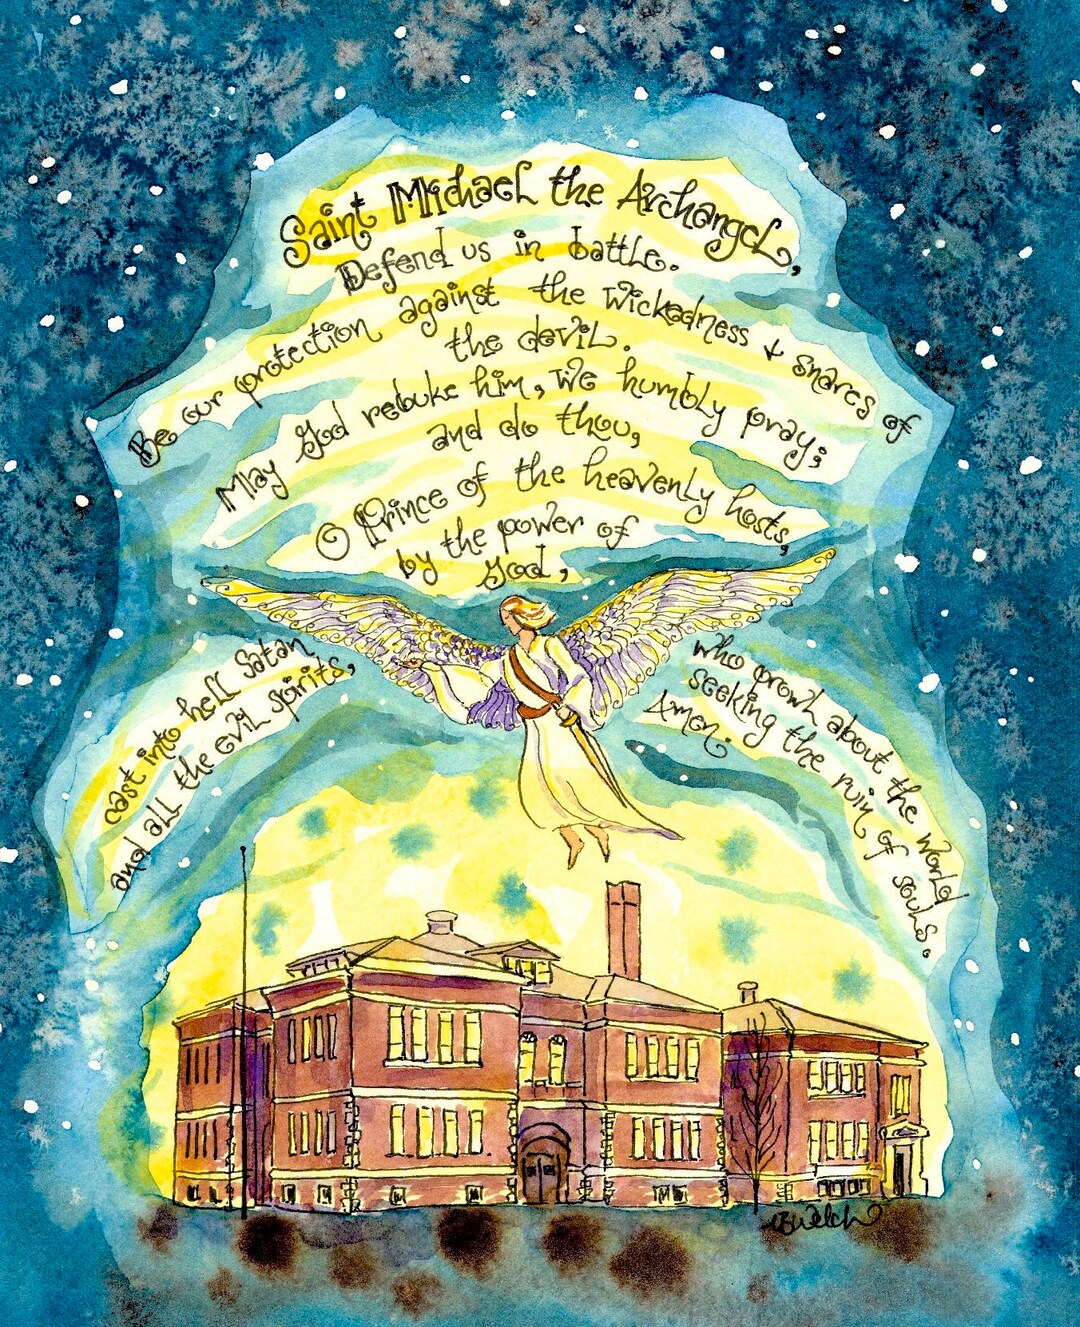 Saint Michael the Archangel,
Defend us in battle.
Be our protection against the wickedness & snares of
the devil.
May God rebuke him, we humbly pray;
and do thou,
O Prince of the heavenly hosts,
by the power of
God,
cast into hell Satan
and all the evil spirits,
who prowl about the world
seeking the ruin of souls.
Amen.
BWelch